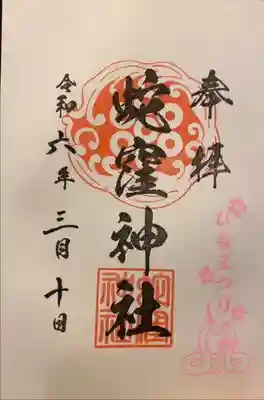 奉拝
蛇窪神社
令和六年三月十日
ひなまつり